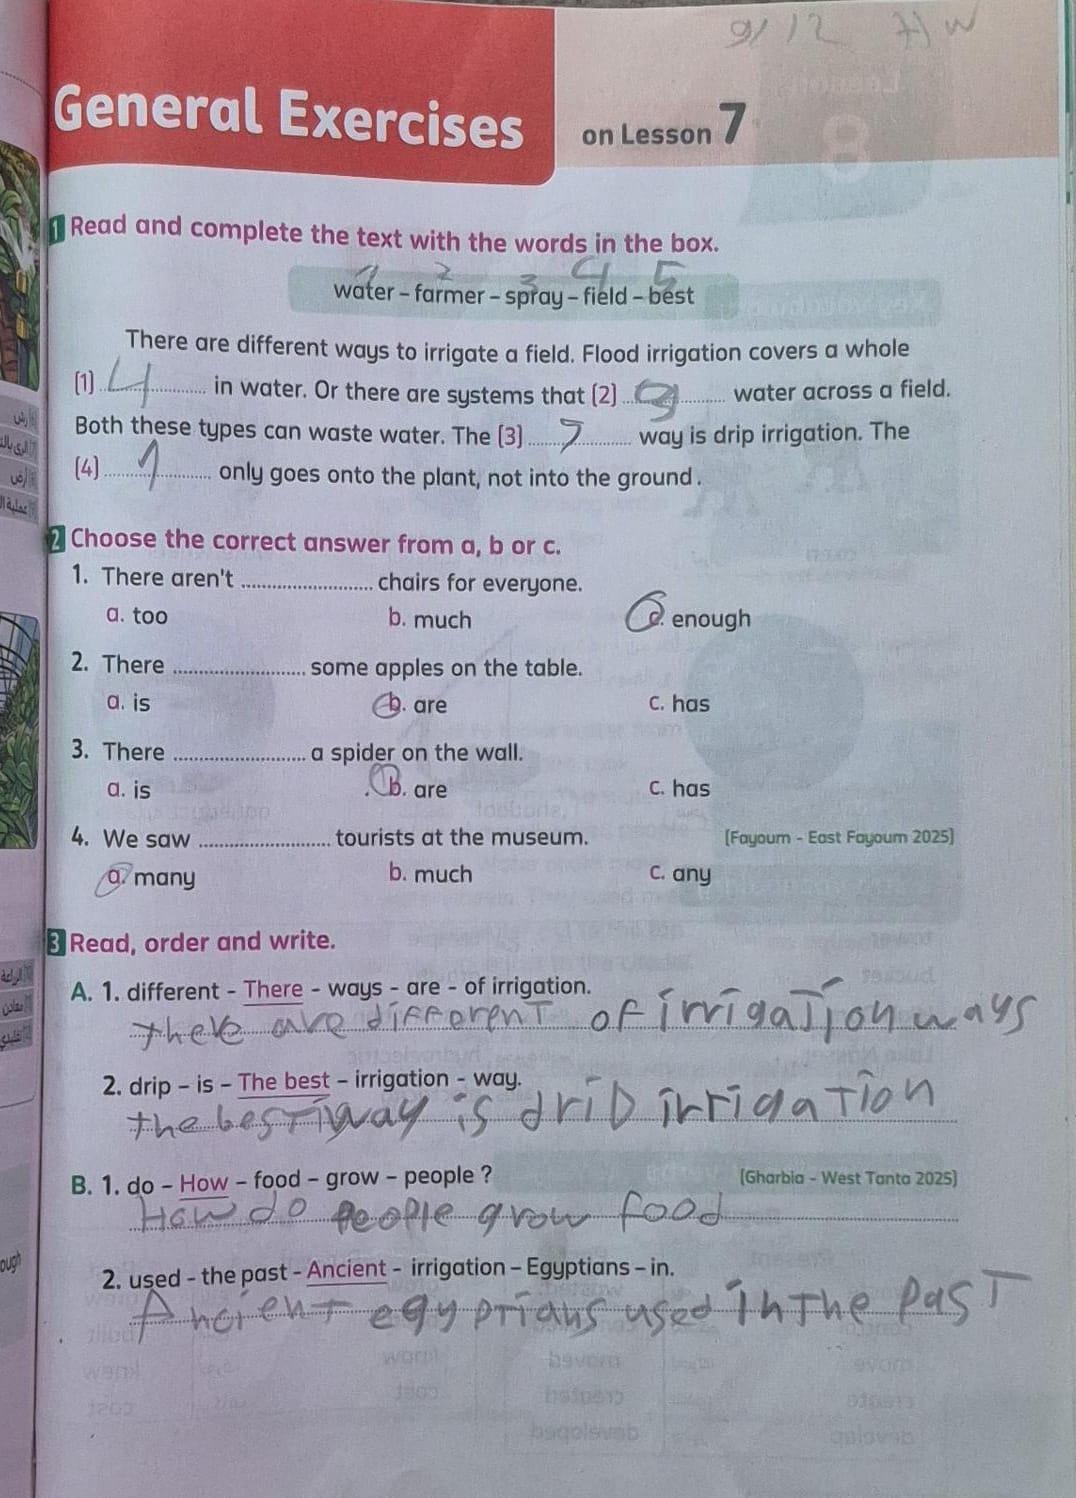 9/12 H W
General Exercises on Lesson 7
1 Read and complete the text with the words in the box.
1 2 3 4 5
water – farmer – spray – field – best
There are different ways to irrigate a field. Flood irrigation covers a whole
(1) 4 in water. Or there are systems that (2) 3 water across a field.
Both these types can waste water. The (3) 5 way is drip irrigation. The
(4) 1 only goes onto the plant, not into the ground.
2 Choose the correct answer from a, b or c.
1. There aren't ........................ chairs for everyone.
a. too b. much c. enough
2. There ........................ some apples on the table.
a. is b. are c. has
3. There ........................ a spider on the wall.
a. is b. are c. has
4. We saw ........................ tourists at the museum. (Fayoum - East Fayoum 2025)
a. many b. much c. any
3 Read, order and write.
A. 1. different – There – ways – are – of irrigation.
there are different of irrigation ways
2. drip – is – The best – irrigation – way.
the best way is drib irrigation
B. 1. do – How – food – grow – people ? (Gharbia - West Tanta 2025)
How do people grow food
2. used – the past – Ancient – irrigation – Egyptians – in.
Ancient egyptians used in the past